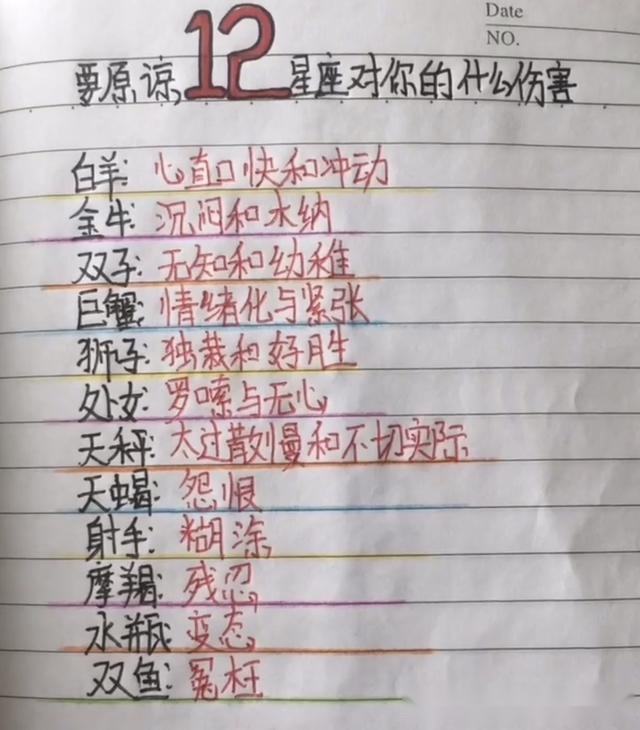 Date
NO.
要原谅12星座对你的什么伤害
白羊: 心直口快和冲动
金牛: 沉闷和木纳
双子: 无知和幼稚
巨蟹: 情绪化与紧张
狮子: 独裁和好胜
处女: 罗嗦与无心
天秤: 太过散漫和不切实际
天蝎: 怨恨
射手: 糊涂
摩羯: 残忍
水瓶: 变态
双鱼: 冤枉